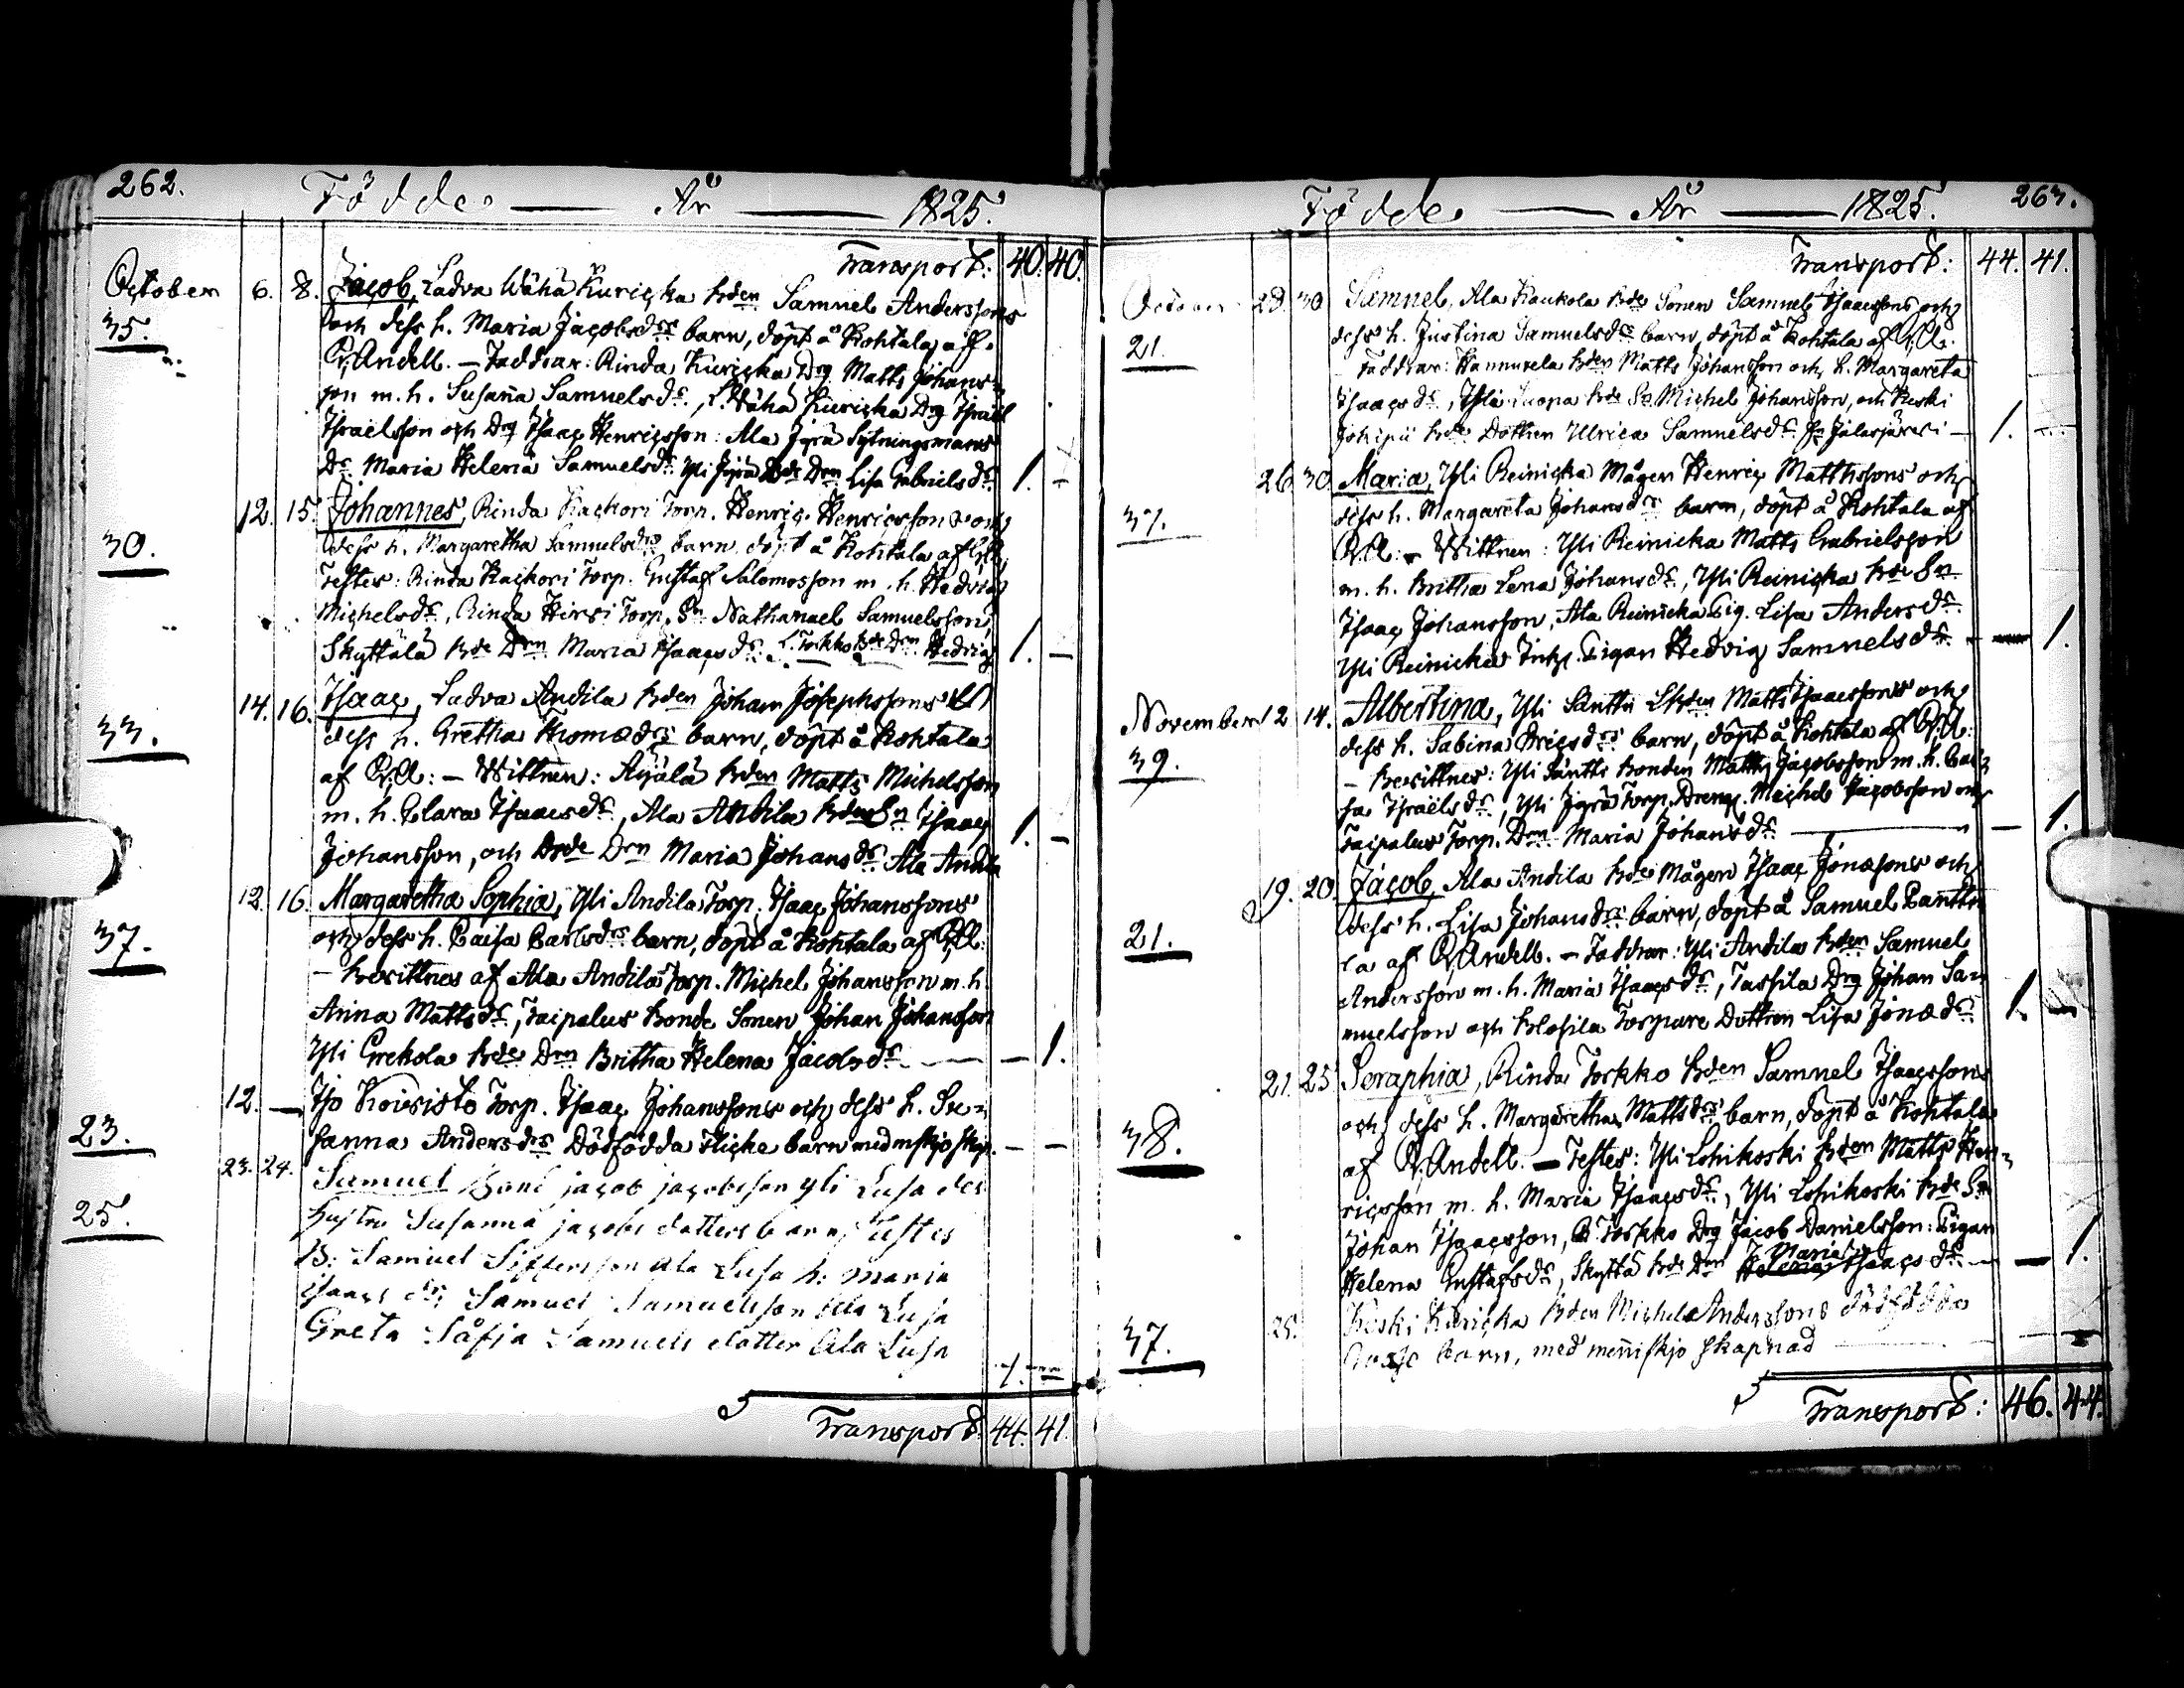 262.
Födde År 1825.
Transport: 40. 40.
October 6. 8. Jacob, Ladva Wähä Kuricka Bden Samuel Anderssons
35. och dess h. Maria Jacobsdrs barn, döpt å Kohtala af
Q. Andell. – Faddrar: Rinda Kuricka Drg Matts Johans-
son m. h. Susana Samuelsdr., L. Wähä Kuricka Drg Israel
Israelsson och Drg Isaac Henricsson: Ala Jyrä Sytningsmans
Dr. Maria Helena Samuelsdr. Yli Jyrä Bde Drn Lisa Gabrielsdr. 1. –
12. 15. Johannes, Rinda Kackori Torp. Henric Henricssons och
30. dess h. Margaretha Samuelsdrs barn, döpt å Kohtala af
Testes: Rinda Kackori Torp. Gustaf Salomosson m. h. Hedvig
Michelsdr, Rinda Hirvi Torp. Sn Nathanael Samuelsson,
Skyttälä Bde Drn Maria Isaacsdr. L. Torkko Bde Drn Hedvig 1. –
14. 16. Isaac, Ladva Andila Bden Johan Josephssons och
33. dess h. Gretha Thomædrs barn, döpt å Kohtala
af Q.A: – Wittnen: Äyälä Bden Matts Michelsson
m. h. Clara Isaacsdr, Ala Andila Bden Sn Isaac
Johansson, och Bde Drn Maria Johansdr. Ala Andila 1. –
12. 16. Margaretha Sophia, Yli Andila Torp. Isaac Johanssons
37. och dess h. Caisa Carlsdrs barn, döpt å Kohtala af Q.A:
– Bevittnes af Ala Andila Torp. Michel Johansson m. h.
Anna Mattsdr, Taipalus Bonde Sonen Johan Johansson
Yli Grekola Bde Drn Britha Helena Jacobsdr – 1.
12. – Iso Koivisto Torp. Isaac Johanssons och dess h. Su-
23. sanna Andersdrs Dödfödda Flicke barn med mskjo skap. – –
23. 24. Samuel Bond jacob jacobsson yli Lusa des
25. hustru Susanna jacobs dotters barn, Testes
B: Samuel Sifferson Ala Lusa h: maria
isaacs dr, Samuel Samuelsson Ala Lusa
Greta Såfja Samuels dotter Ala Lusa
1. –
Transport. 44. 41.
Födde År 1825. 263.
Transport: 44. 41.
October 29. 30. Samuel, Ala Kaukola Bde Sonen Samuel Isaacssons och
21. dess h. Justina Samuelsdrs barn, döpt å Kohtala af Q.A.
Faddrar: Hannuxela Bden Matts Johansson och h. Margareta
Isaacsdr, Yli Luopa Bde So. Michel Johansson, och Keski
Jokipii Bde Dottren Ulrica Samuelsdr fr Jalasjärvi – 1. –
26. 30. Maria, Yli Reinicka Mågen Henric Matthssons och
37. dess h. Margareta Johansdrs barn, döpt å Kohtala af
Q.A: – Wittnen: Yli Reinicka Matts Gabrielsson
m. h. Britha Lena Johansdr, Yli Reinicka Bde Sn
Isaac Johansson, Ala Reinicka Pig. Lisa Andersdr.
Yli Reinicka Inhy. Pigan Hedvig Samuelsdr. – 1.
November 12. 14. Albertina, Yli Säntti Lbden Matts Isaacssons och
39. dess h. Sabina Ericsdrs barn, döpt å Kohtala af Q.A:
– Bevittnes: Yli Säntti Bonden Matts Jacobsson m. h. Cai-
sa Israelsdr, Yli Jyrä Torp. Dreng. Michel Jacobsson och
Taipalus Torp. Drn Maria Johansdr. – 1.
19. 20. Jacob, Ala Andila Bde Mågen Isaac Jonæsons och
21. dess h. Lisa Johansdrs barn, döpt å Samuel Pantti-
la af Q. Andell. – Faddrar: Yli Andila Bden Samuel
Andersson m. h. Maria Isaacsdr, Tassila Drg Johan Sa-
muelsson och Klosila Torpare Dottren Lisa Jonædr. 1. –
21. 25. Seraphia, Rinda Torkko Bden Samuel Isaacssons
38. och dess h. Margaretha Mattsdrs barn, döpt å Kohtala
af Q. Andell. – Testes: Yli Lohikoski Bden Matts Hen-
ricsson m. h. Maria Isaacsdr, Yli Lohikoski Bde Sn
Johan Isaacsson, R. Torkko Drg Jacob Danielsson: Pigan
Helena Gustafsdr, Skyttä Bde Drn Helena Maria Isaacsdr. – 1.
25. Keski Kuricka Bden Michel Anderssons dödfödda
37. Gosse barn, med menniskjo skapnad – –
Transport: 46. 44.